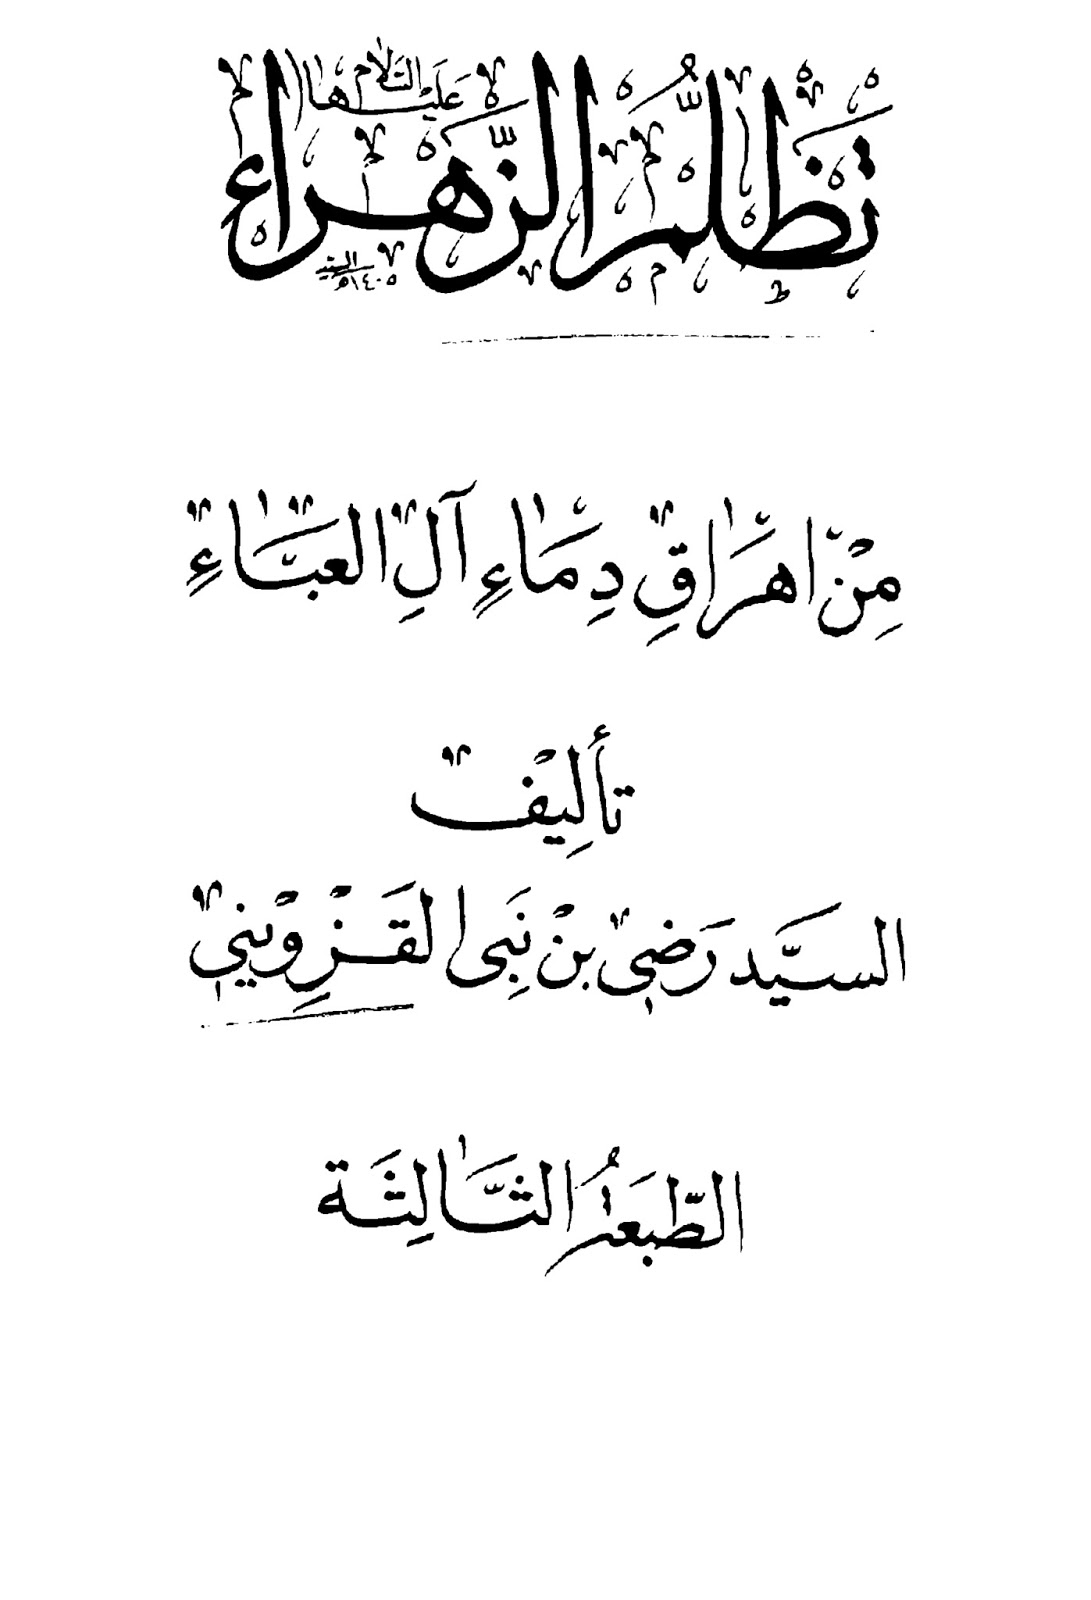 تَظَلُّمُ الزَّهْرَاءِ
عَلَيْهَا السَّلَامُ
١٤٠٥ه
مِنْ اهرَاقِ دِمَاءِ آلِ العَبَّاءِ
تأليف
السيَّد رَضي بنْ نَبي القَزوِيني
الطَّبعَةُ الثَّالِثَة